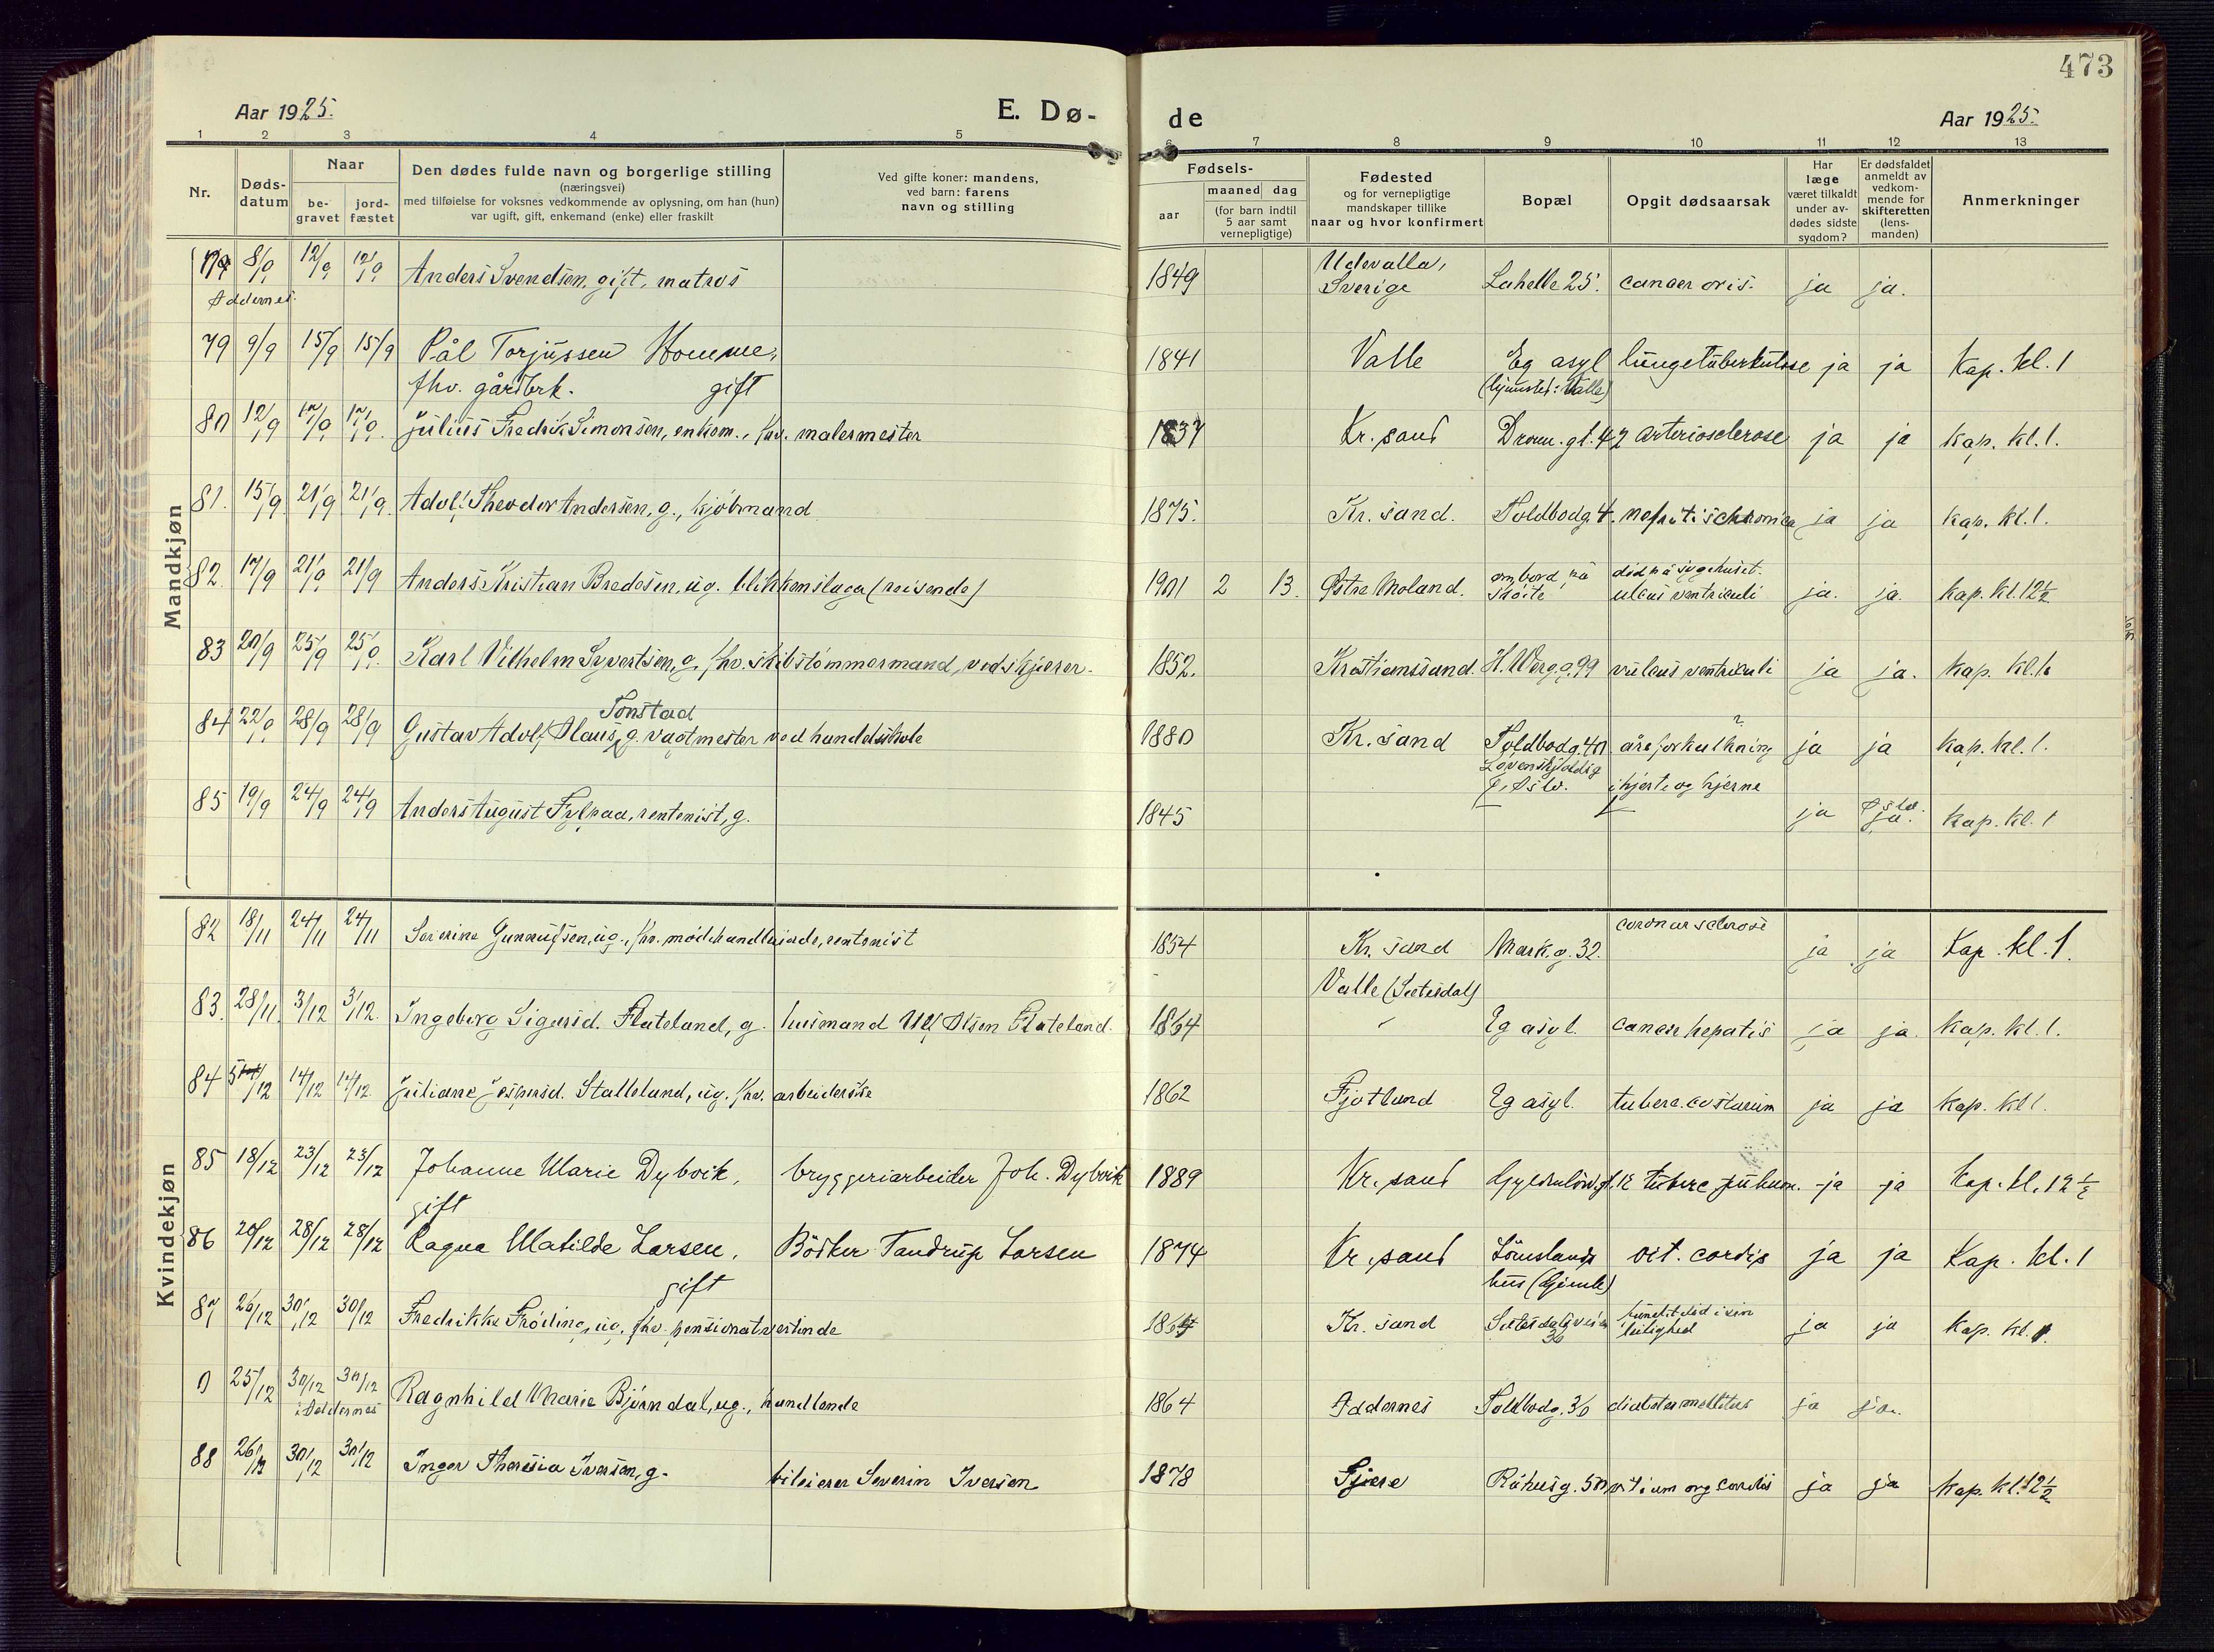 473
Aar 1925.
E. Dø-
de
Aar 1925.
1 2 3 4 5 6 7 8 9 10 11 12 13
Nr.
Døds-
datum
Naar
be-
gravet
jord-
fæstet
Den dødes fulde navn og borgerlige stilling
(næringsvei)
med tilføielse for voksnes vedkommende av oplysning, om han (hun)
var ugift, gift, enkemand (enke) eller fraskilt
Ved gifte koner: mandens,
ved barn: farens
navn og stilling
Fødsels-
aar
maaned dag
(for barn indtil
5 aar samt
vernepligtige)
Fødested
og for vernepligtige
mandskaper tillike
naar og hvor konfirmert
Bopæl
Opgit dødsaarsak
Har
læge
været tilkaldt
under av-
dødes sidste
sygdom?
Er dødsfaldet
anmeldt av
vedkom-
mende for
skifteretten
(lens-
manden)
Anmerkninger
Mandkjøn
8/9 12/9 12/9 Anders Svendsen, gift, matros 1849 Udevalla, Sverige Lahelle 25. cancer oris. ja ja.
Oddernes.
79 9/9 15/9 15/9 Pål Torjussen Homme, 1841 Valle Eg asyl lungetuberkulose ja ja Kap. kl. 1
fhv. gårdbrk. gift (hjemsted: Valle)
80 12/9 17/9 17/9 Julius Fredrik Simonsen, enkem., fhv. malermester 1837 Kr.sand Dronn. gt. 42 arteriosclerose ja ja Kap. kl. 1.
81. 15/9 21/9 21/9 Adolf Theodor Andersen, g., kjøbmand 1875. Kr. sand. Toldbodg. 4. nefritis chronica ja ja Kap. kl. 1.
82. 17/9 21/9 21/9 Anders Kristian Bredesen, ug. blikkenslager (reisende) 1901 2 13. Østre Moland. ombord på skøite død på sygehuset. ulcus ventriculi ja. ja. Kap. kl. 12½
83 20/9 25/9 25/9 Karl Vilhelm Syvertsen, g, fhv. skibstømmermand, vedskjærer. 1852. Kristianssand. H. Werg. g. 99 ulcus ventriculi ja ja. Kap. kl. 1.
Tonstad
84 22/9 28/9 28/9 Gustav Adolf Olaus, g. vagtmester ved handelsskole 1880 Kr. sand Toldbodg. 40 åreforkalkning ? ja ja Kap. kl. 1.
Løvenskjoldsg
i hjerte og hjerne
85 19/9 24/9 24/9 Anders August Fylpaa, rentenist, g. 1845 ja Oslo. ja. Kap. kl. 1
Kvindekjøn
82 18/11 24/11 24/11 Severine Gunnufsen, ug., fhv. modehandlerinde, rentenist 1854 Kr. sand Mark. g. 32. coronar sclerose ja ja Kap. kl. 1.
83. 28/11. 3/12 3/12. Ingeborg Sigursd. Flateland, g. husmand Ulf Olsen Flateland. 1864 Valle (Setesdal) Eg asyl. cancer hepatis ja ja. Kap. kl. 1.
84 5/12 14/12 14/12. Juliane Jespersd. Stalleland, ug. fhv. arbeiderske 1862 Fjotland Eg asyl. tuberc. costarum ja ja Kap. kl 1.
85 18/12 23/12 23/12 Johanne Marie Dybvik, bryggeriarbeider Joh. Dybvik 1889 Kr.sand Gyldenløvsgt. 12 tuberc pulmon. ja ja Kap. kl. 12½
gift
86 20/12 28/12 28/12 Ragna Matilde Larsen, Bødker Tandrup Larsen 1874 Kr.sand Lømslands vit. cordis ja ja Kap. kl. 1
gift hus (Gimle)
87 26/12 30/12 30/12 Fredrikke Frøiling, ug. fhv. pensionatvertinde 1864 Kr. sand Setesdalsveien 36 fundet død i sin leilighed ja ja Kap. kl. 1.
0 25/12 30/12 30/12 Ragnhild Marie Bjørndal, ug., handlende 1864 Oddernes Toldbodg. 36 diabetes mellitus ja ja.
i Oddernes
88 26/12 30/12 30/12 Inger Theresia Iversen, g. bileierer Severin Iversen 1878 Fjære Råhusg. 50 vitium org cordis ja ja Kap. kl. 12½